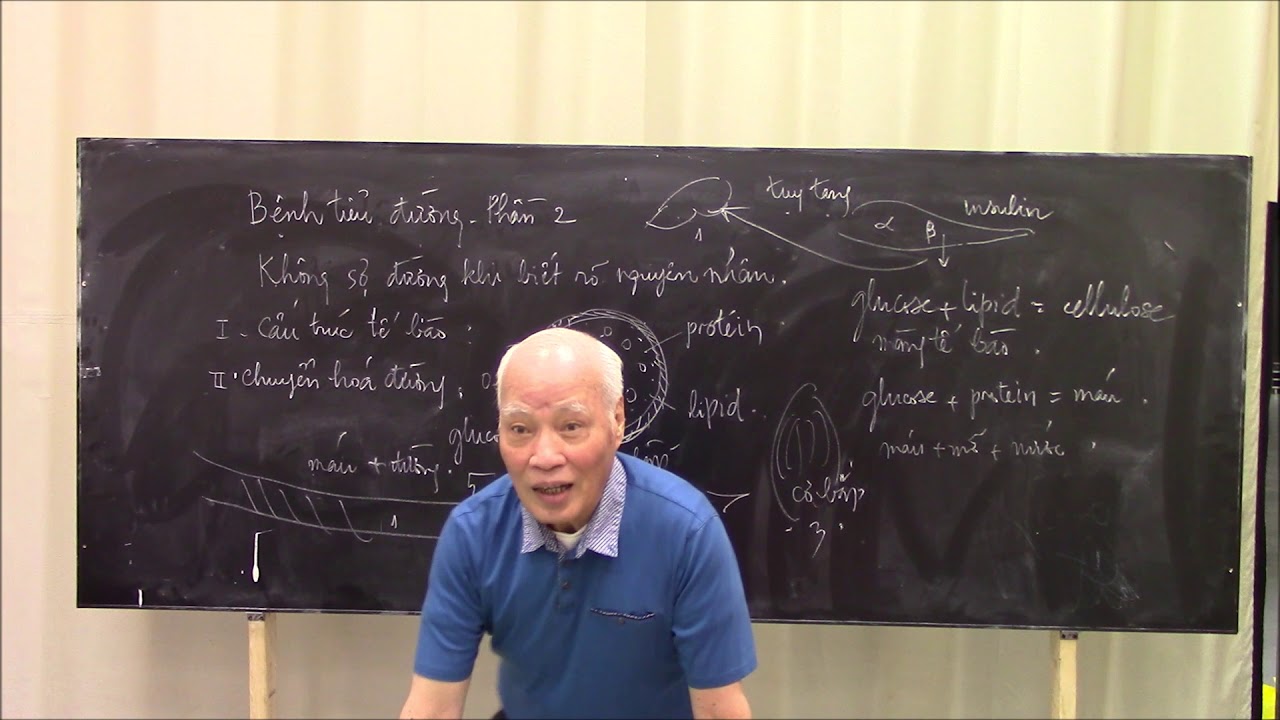 Bệnh tiểu đường - Phần 2
Không sợ đường khi biết rõ nguyên nhân.
I - Cấu trúc tế bào :
II - Chuyển hoá đường :
protéin
lipid
máu + đường
1
tụy tạng
insulin
α
β
1
glucose + lipid = cellulose
màng tế bào .
glucose + protein = máu .
máu + mỡ + nước
cơ bắp
- 3 .